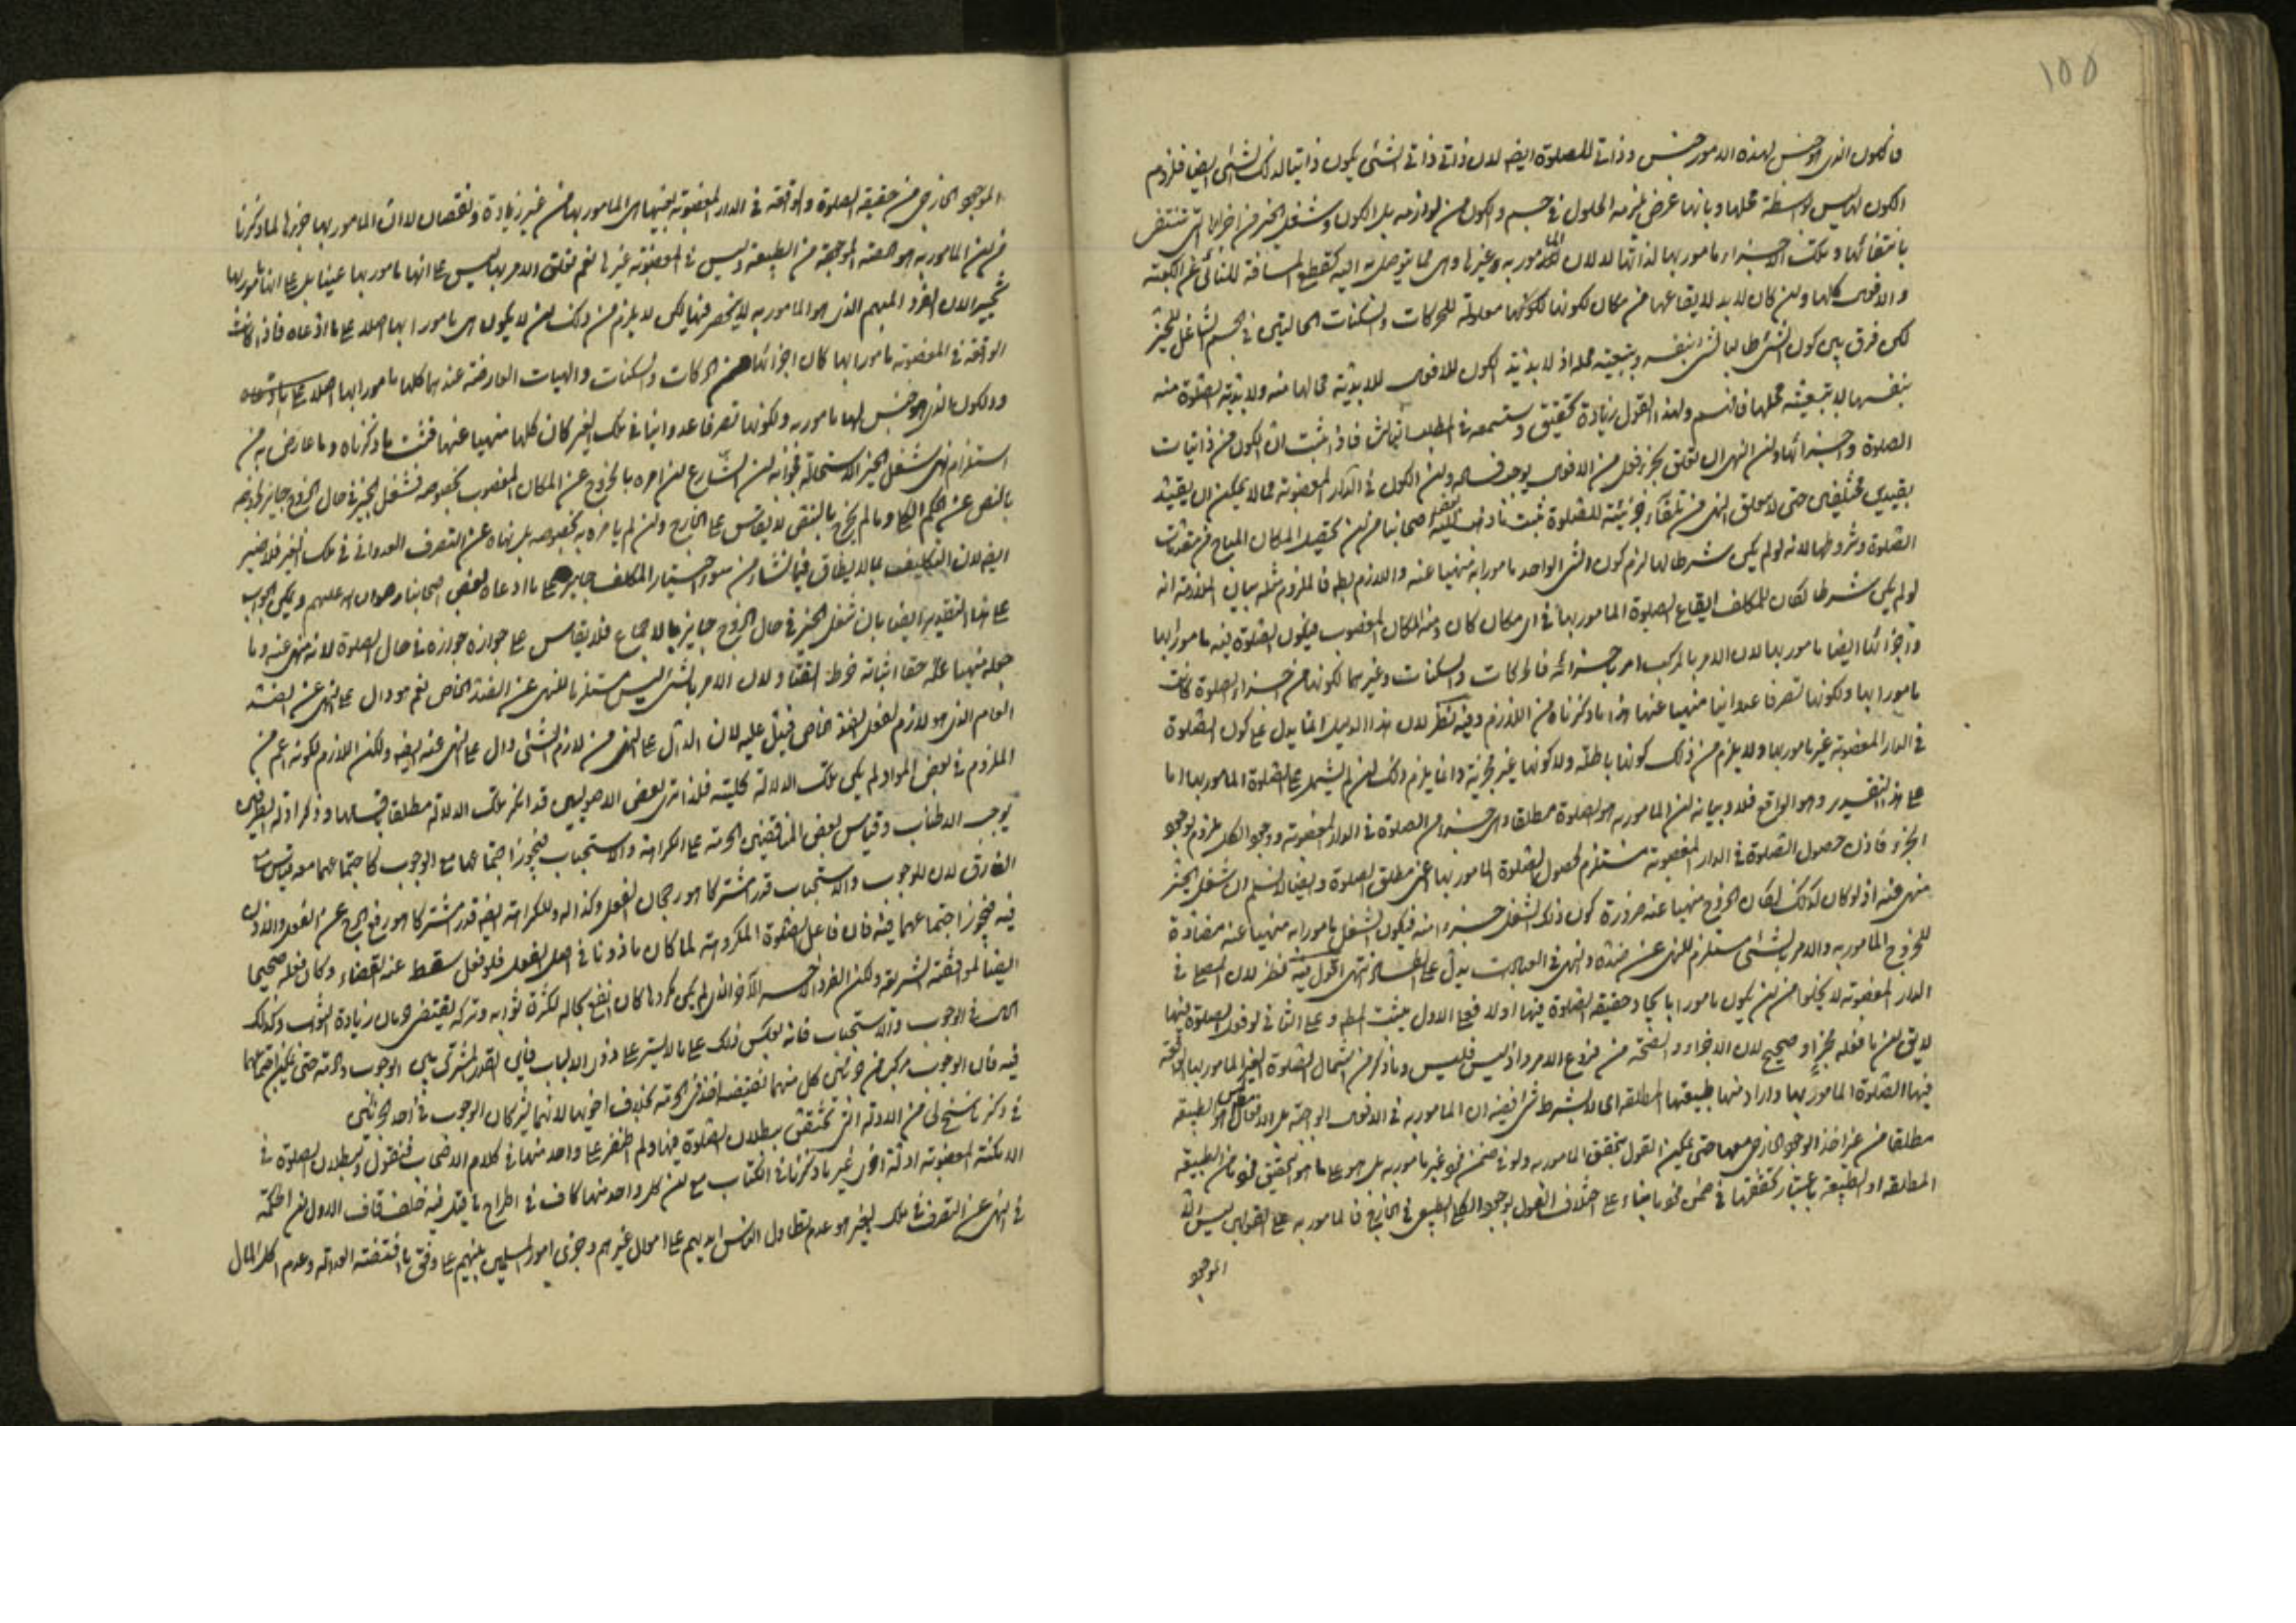 ١٥٥
فالكون الذى هو جنس لهذه الامور جنس وذاتى للصلوة ايضا لان ذاتى ذاتى الشئ يكون ذاتيا لذلك الشئ ايضا فلزوم
الكون ليس بواسطة محلها وبانها عرض يلزمه الحلول فى جسم والكون من لوازمه بل الكون وشغل الحيز من اجزائها التى تنتفى
بانتفائها وتلك الاجزاء مامور بها لذاتها لا لان المامور به وغيرها وهى مما يتوصل به اليه كقطع المسافة للنائى عن الكعبة
والاقوى كلها وان كان لابد لايقاعها من مكان لكونها معلولة للحركات والسكنات الحاليتين فى الجسم الشاغل للحيز
لكن فرق بين كون الشئ طالبا لشئ بنفسه وبتبعية محله اذ لابدية الكون للاقوى للابدية محالها منه ولابدية الصلوة منه
بنفسها لا بتبعية محلها فافهم ولهذا القول زيادة تحقيق وستسمعه فى المطلب فاذا ثبت ان الكون من ذاتيات
الصلوة واجزائها وان النهى ان تعلق بجزء فعل من الاقوى يوجب فساده وان الكون فى الدار المغصوبة مما لا يمكن ان يقيد
بقيدين مختلفين حتى لا يتعلق النهى من تلقاء جزئيته للصلوة ثبت
الصلوة وشروطها لانه لو لم يكن شرطا لها لزم كون الشئ الواحد مامورا به منهيا عنه واللازم بط فالملزوم مثله بيان الملازمة انه
لو لم يكن شرطا لكان للمكلف ايقاع الصلوة المامور بها فى اى مكان كان ومنه المكان المغصوب فيكون الصلوة فيه مامورا بها
واجزائها ايضا مامور بها لان الامر بالمركب امر باجزائه فالحركات والسكنات وغيرهما لكونها من اجزاء الصلوة كانت
مامورا بها ولكونها تصرفا عدوانيا منهيا عنها هذا ما ذكرناه من اللازم وفيه نظر لان هذا الدليل انما يدل على كون الصلوة
فى الدار المغصوبة غير مامور بها ولا يلزم من ذلك كونها باطلة ولا كونها غير مجزية وانما يلزم ذلك لو لم يشتمل على الصلوة المامور بها اما
على هذا التقدير وهو الواقع فلا وبيانه ان المامور به هو الصلوة مطلقا وهى جزء من الصلوة فى الدار المغصوبة ووجود الكل ملزوم لوجود
الجزء فاذن حصول الصلوة فى الدار المغصوبة مستلزم لحصول الصلوة المامور بها اعنى مطلق الصلوة وايضا لا نسلم ان شغل الحيز
منهى عنه اذ لو كان كذلك لكان الخروج منهيا عنه ضرورة كون ذلك الشغل جزءا منه فيكون الشغل مامورا به منهيا عنه مضادة
للخروج المامور به والامر بالشئ مستلزم للنهى عن ضده والنهى فى العبادات يدل على الفساد انتهى اقول فيه نظر لان المصلى فى
الدار المغصوبة لا يخلوا من ان يكون مامورا بايجاد حقيقة الصلوة فيها او لا فعلى الاول يثبت المط وعلى الثانى لو فعل الصلوة فيها
لايق ان ما فعله مجزء او صحيح لان الاجزاء والصحة من فروع الامر واذ ليس فليس وما ذكر من اشتمال الصلوة الغير المامور بها الواقعة
فيها الصلوة المامور بها واراد منها طبيعتها المطلقة اى لا بشرط شئ ففيه ان المامور به فى الاقوى الواجبة بل الاقوال ليس هو الطبيعة
مطلقا من غير اخذ الوجود الخارجى معها حتى يمكن القول بتحقق المامور به ولو فى ضمن فرد غير مامور به بل هو على ما هو التحقيق فرد من الطبيعة
المطلقة او الطبيعة باعتبار تحققها فى ضمن فرد ما بناء على اختلاف القول بوجود الكلى الطبيعى فى الخارج فالمامور به على القولين ليس الا
الموجود
الموجود الخارجى من حقيقة الصلوة والواقعة فى الدار المغصوبة بعينها هى المامور بها من غير زيادة ونقصان لا ان المامور بها جزئها لما ذكرنا
من ان المامور به هو الحصة الموجودة من الطبيعة وليس فى المغصوبة غيرها نعم تعلق الامر بها ليس على انها مامور بها عينا بل على انها مامور بها
تخييرا لان الفرد المبهم الذى هو المامور به لا ينحصر فيها لكن لا يلزم من ذلك ان لا يكون هى مامورا بها اصلا على ما ادعاه فاذا كانت
الواقعة فى المغصوبة مامورا بها كان اجزائها من الحركات والسكنات والهيات العارضة عنهما كلها مامورا بها
والكون الذى هو جنس لها مامور به ولكونها تصرفا عدوانيا فى ملك الغير كان كلها منهيا عنها فثبت ما ذكرناه وما عارض به من
استلزام نهى شغل الحيز الاستحالة فجوابه ان الشارع ان امره بالخروج عن المكان المغصوب بخصوصه فشغل الحيز فى حال الخروج جايز لخروجه
بالنص عن الحكم الكلى وما لم يخرج بالنص لا يقاس على الخارج وان لم يامره به بخصوصه بل نهاه عن التصرف العدوانى فى ملك الغير فلا ضير
ايضا لان التكليف بما لا يطاق فيما نشاء من سوء اختيار المكلف جايز على ما ادعاه بعض اصحابنا رضوان الله عليهم ويمكن الجواب
على هذا التقدير ايضا بان شغل الحيز فى حال الخروج جايز بالاجماع فلا يقاس على جوازه جوازه فى حال الصلوة لانه منهى عنه وما
جعله منهيا عنه حقا اثباته خرط القتاد لان الامر بالشئ ليس مستلزما للنهى عن الضد الخاص نعم هو دال على النهى عن الضد
العام الذى هو لازم لفعل الضد الخاص فيدل عليه لان الدال على النهى من لازم الشئ دال على النهى عنه ايضا ولكن اللازم لكونه اعم من
الملزوم فى بعض المواد لم يكن تلك الدلالة كلية فلذا ترى بعض الاصوليين قد انكر تلك الدلالة مطلقا
يوجب الاطناب وقياس بعض المناقضين الحرمة على الكراهة والاستحباب فيجوز اجتماعهما مع الوجوب كاجتماعهما معه قياس مع
الفارق لان للوجوب والاستحباب قدرا مشتركا هو رجحان الفعل وكذا له وللكراهة ايضا قدر مشتركا هو رفع الحرج عن الفعل والاذن
فيه فيجوز اجتماعهما فيه فان فاعل الصلوة المكروهة لما كان ماذونا فى اصل الفعل فلو فعل سقط عنه القضاء وكان فعله صحيحا
ايضا لموافقته الشريعة ولكن الفرد الاخر الذى لم يكن مكروها كان انفع بحاله لكثرة ثوابه وتركه يقتضى حرمان زيادة الثواب وكذلك
الحال فى الوجوب والاستحباب فانه بعكس ذلك على ما لا يستر على ذوى الالباب فاين القدر المشترك بين الوجوب والحرمة حتى يمكن اجتماعهما
فيه فان الوجوب مركب من جزئين كل منهما نقيضه اخذ فى الحرمة بخلاف اخويها لانهما يشركان الوجوب فى احد الجزئين
فى ذكر ما سنح لى من الادلة التى تحقق بطلان الصلوة فيها ولم اظفر على واحد منها فى كلام الاصحاب فنقول لبطلان الصلوة فى
الامكنة المغصوبة ادلة اخرى غير ما ذكرنا فى الكتاب مع ان كل واحد منها كاف فى اطراح ما قيل فيه خلف قاف الاول ان الحكمة
فى النهى عن التصرف فى ملك الغير هو عدم تطاول الناس ايديهم على اموال غيرهم وجرى امور المسلمين بينهم على وفق ما اقتضته العدالة وعدم اكل المال